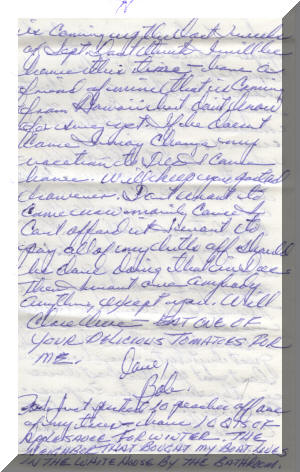 is coming up the last week
of Sept. I don't think I will be
home this time – have a
friend of mine that is coming
from Hawaii but don't know
for sure yet. If he doesn't
come I may change my
vacation to Dec &
home. Will keep you posted
however. I don't want to
come now mainly cause I
can't afford it & want to
pay all of my bills off. Should
be done doing that
Then I wont owe anybody
anything, except you. Will
close here – EAT ONE OF
YOUR DELICIOUS TOMATOES FOR
ME.
Love,
Bob.
just picked 50 peaches off one
of my trees – have 10 QTS OF
APPLESAUCE FOR WINTER. THE
NEIGHBOR THAT BOUGHT MY BOAT LIVES
IN THE WHITE HOUSE BY THE BATHROOM.